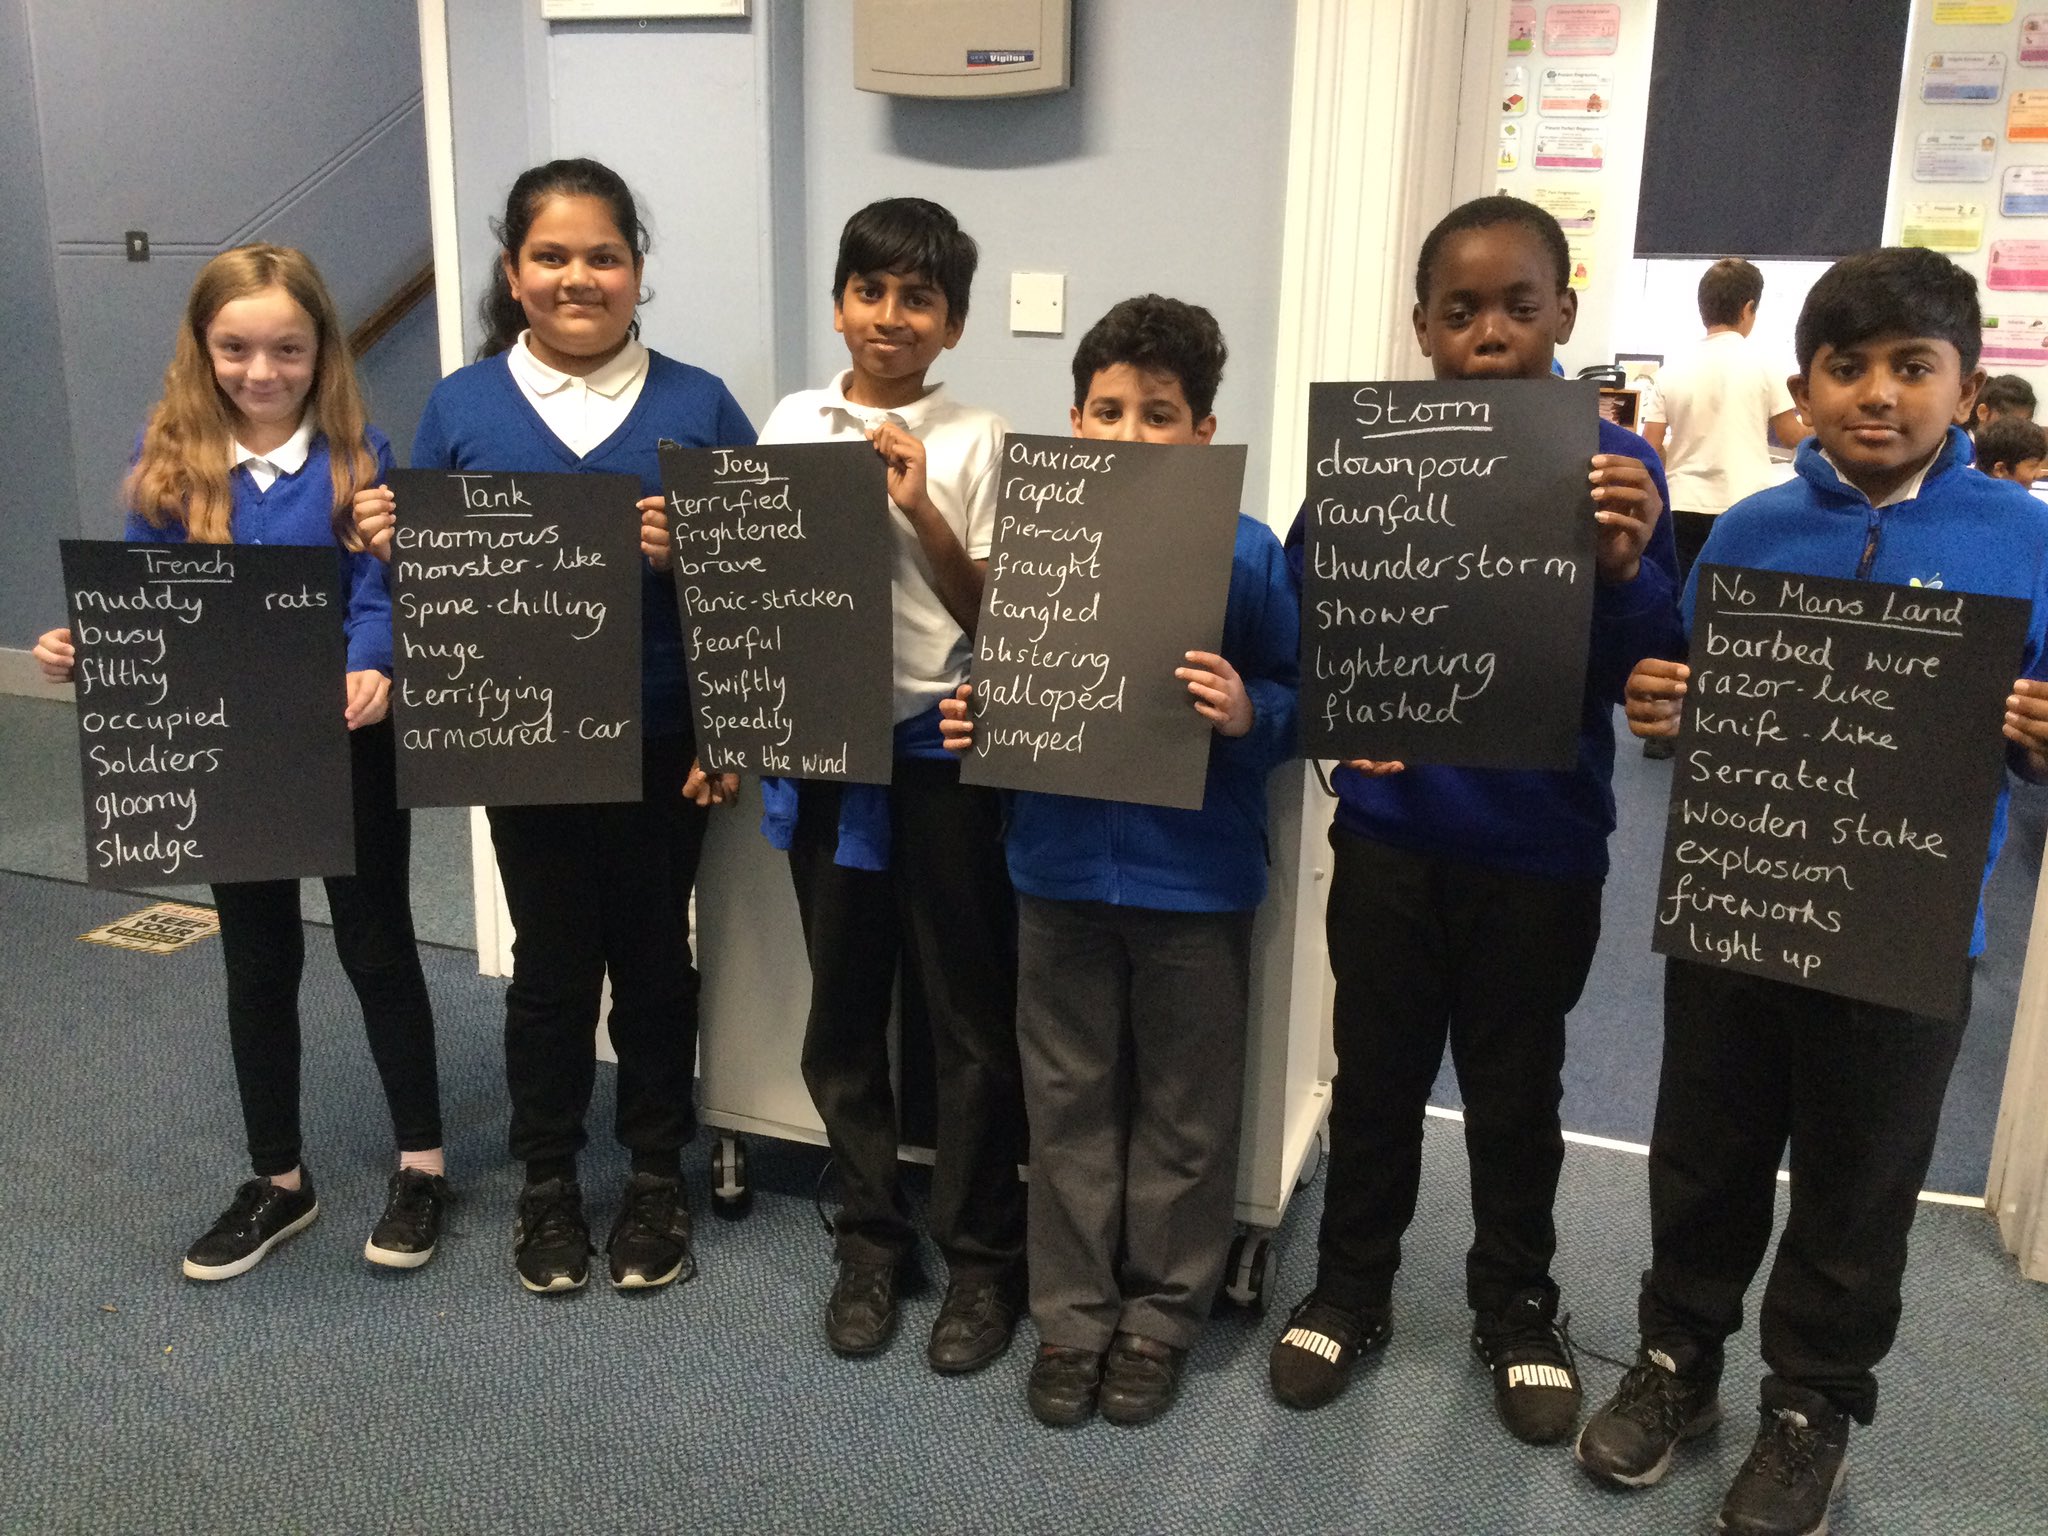 Vigilon
Trench
muddy rats
busy
filthy
occupied
Soldiers
gloomy
sludge
Tank
enormous
monster-like
Spine-chilling
huge
terrifying
armoured-car
Joey
terrified
frightened
brave
Panic-stricken
fearful
Swiftly
Speedily
like the wind
anxious
rapid
Piercing
fraught
tangled
blistering
galloped
jumped
Storm
downpour
rainfall
thunderstorm
shower
lightening
flashed
No Mans Land
barbed wire
razor-like
knife-like
Serrated
wooden stake
explosion
fireworks
light up
KEEP
YOUR
PUMA
PUMA